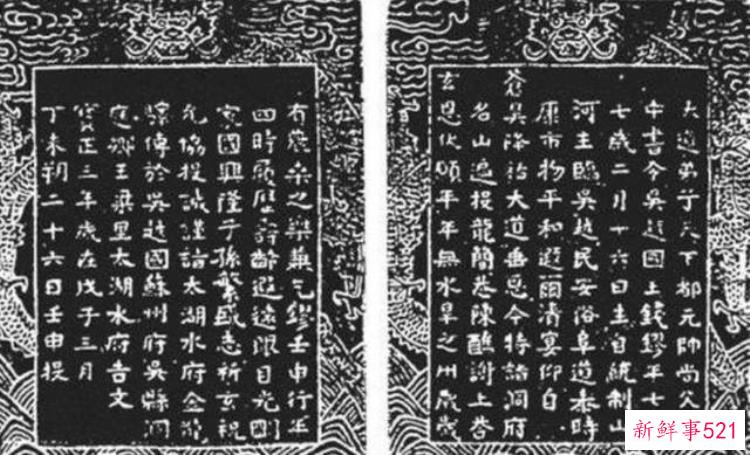 大道弟子天下都元帥尚父
中書令吳越國王錢鏐年七十
七歲二月十六日生自統制山
河主臨吳越民安俗阜道泰時
康市物平和遐邇清宴仰自
蒼昊降祐大道垂恩今特詣洞府
名山遍投龍簡恭陳醮謝上答
玄恩伏願年年無水旱之州歲歲
有農桑之樂兼乞鏐壬申行年
四時履歷壽齡遐遠眼目光明
家國興隆子孫繁盛志祈玄祝
允協投誠謹詣太湖水府金龍
驛傳於吳越國蘇州府吳縣洞
庭鄉王梁里太湖水府告文
寶正三年歲在戊子三月
丁未朔二十六日壬申投
新鲜事521